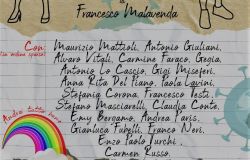 di
Francesco Malavenda
Con:
(in ordine sparso)
Maurizio Mattioli, Antonio Giuliani,
Alvaro Vitali, Carmine Faraco, Gegia,
Antonio Lo Cascio, Gigi Miseferi,
Anna Rita Del Piano, Paola Lavini,
Stefania Corona, Francesco Testi,
Stefano Masciarelli, Claudia Conte,
Emy Bergamo, Andrea Paris,
Gianluca Fubelli, Franco Neri,
Enzo Paolo Turchi
Carmen Russo,
Andrà tutto bene